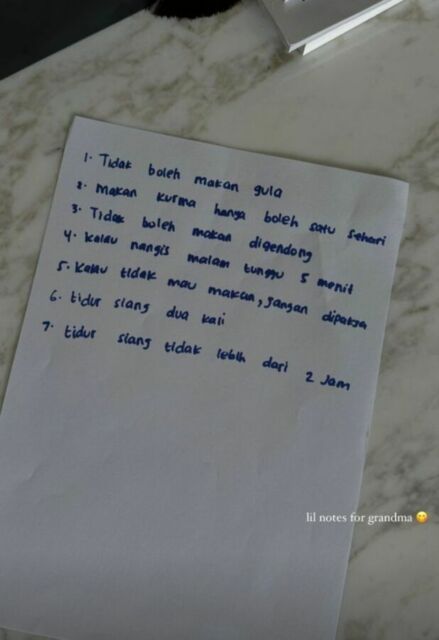 1. Tidak boleh makan gula
2. Makan kurma hanya boleh satu sehari
3. Tidak boleh makan digendong
4. Kalau nangis malam tunggu 5 menit
5. Kalau tidak mau makan, jangan dipaksa
6. tidur siang dua kali
7. tidur siang tidak lebih dari 2 Jam
lil notes for grandma 😋